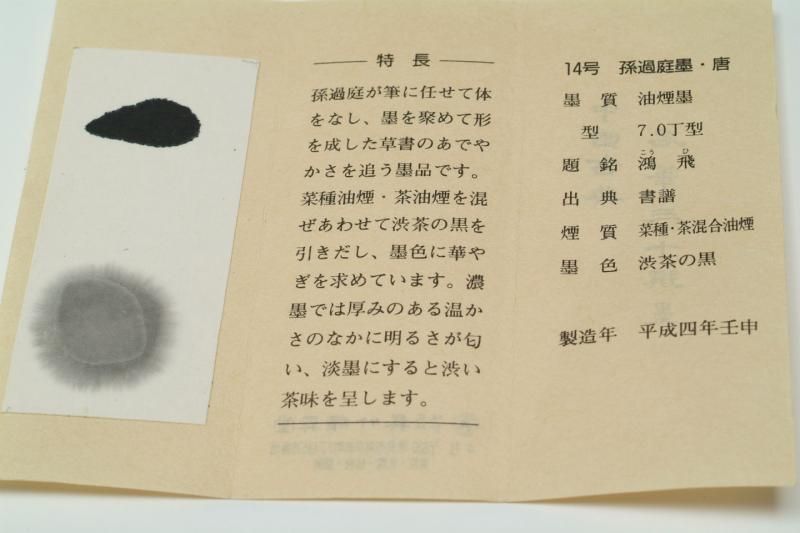 特長
孫過庭が筆に任せて体
をなし、墨を聚めて形
を成した草書のあでや
かさを追う墨品です。
菜種油煙・茶油煙を混
ぜあわせて渋茶の黒を
引きだし、墨色に華や
ぎを求めています。濃
墨では厚みのある温か
さのなかに明るさが匂
い、淡墨にすると渋い
茶味を呈します。
14号 孫過庭墨・唐
墨質 油煙墨
型 7.0丁型
題銘 鴻飛
こう ひ
出典 書譜
煙質 菜種・茶混合油煙
墨色 渋茶の黒
製造年 平成四年壬申